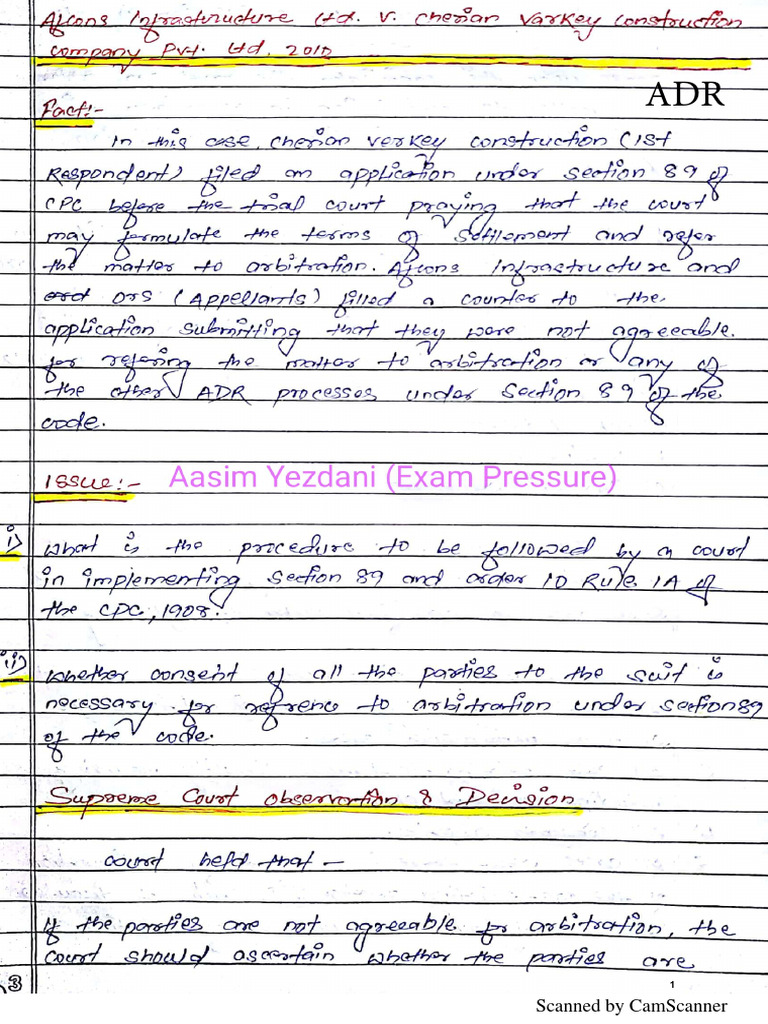 Afcons Infrastructure Ltd. V. Cherian Varkey Construction
Company Pvt. Ltd. 2010
ADR
Fact:-
In this case, Cherian Verkey Construction (1st
Respondent) filed an application under Section 89 of
CPC before the trial court praying that the court
may formulate the terms of settlement and refer
the matter to arbitration. Afcons Infrastructure and
ors (Appellants) filled a counter to the
application submitting that they were not agreeable.
for refering the matter to arbitration or any of
the other ADR processes under Section 89 of the
code.
Issue:- Aasim Yezdani (Exam Pressure)
i) What is the procedure to be followed by a court
in implementing Section 89 and order 10 Rule 1A of
the CPC, 1908.
ii) Whether consent of all the parties to the suit is
necessary for refrence to arbitration under section 89
of the code.
Supreme Court Observation & Decision
Court held that -
If the parties are not agreeable for arbitration, the
court should ascertain whether the parties are
3
1
Scanned by CamScanner